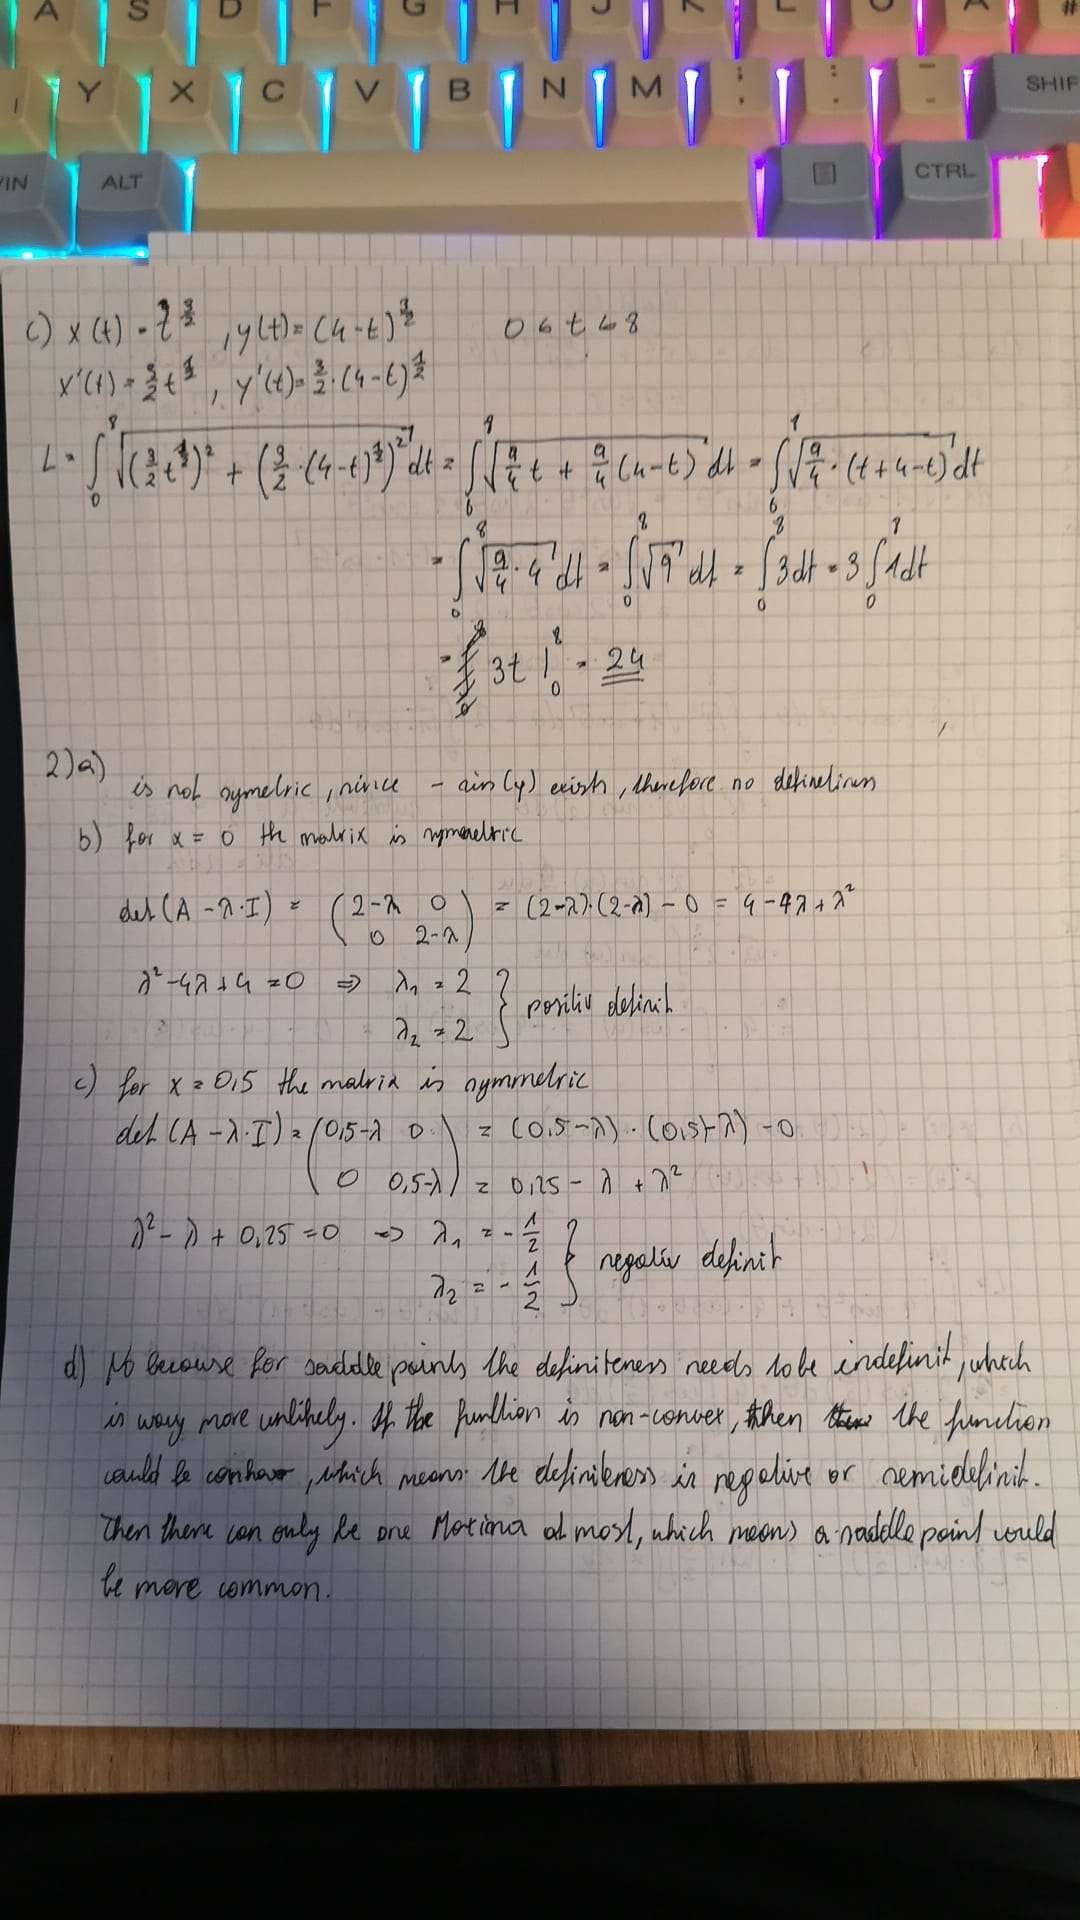 A S D F G H J K L Ö Ä #
Y X C V B N M ; , : . _ - SHIF
WIN ALT CTRL
c) x(t) = t^{3/2} , y(t) = (4-t)^{3/2} 0 ≤ t ≤ 8
x'(t) = 3/2 t^{1/2} , y'(t) = 3/2 · (4-t)^{1/2}
L = ∫_0^8 √((3/2 t^{1/2})² + (3/2 · (4-t)^{1/2})²) dt = ∫_0^8 √(9/4 t + 9/4 (4-t)) dt = ∫_0^8 √(9/4 · (t+4-t)) dt
= ∫_0^8 √(9/4 · 4) dt = ∫_0^8 √9 dt = ∫_0^8 3 dt = 3 ∫_0^8 1 dt
= 3t |_0^8 = 24
2) a)
is not symetric, since - sin(y) exists, therefore no definetiness
b) for x = 0 the matrix is symmetric
det(A - λ·I) = (2-λ 0
0 2-λ) = (2-λ)·(2-λ) - 0 = 4 - 4λ + λ²
λ² - 4λ + 4 = 0 => λ₁ = 2
λ₂ = 2 } positiv definit
c) for x = 0,5 the matrix is symmetric
det(A - λ·I) = (0,5-λ 0 = (0,5-λ) · (0,5-λ) - 0
0 0,5-λ) = 0,25 - λ + λ²
λ² - λ + 0,25 = 0 => λ₁ = - 1/2
λ₂ = - 1/2 } negativ definit
d) No because for saddle points the definiteness needs to be indefinit, which
is way more unlikely. If the funktion is non-convex, then the function
could be , which means the definiteness is negative or semidefinit.
Then there can only be one Maxima at most, which means a saddle point would
be more common.